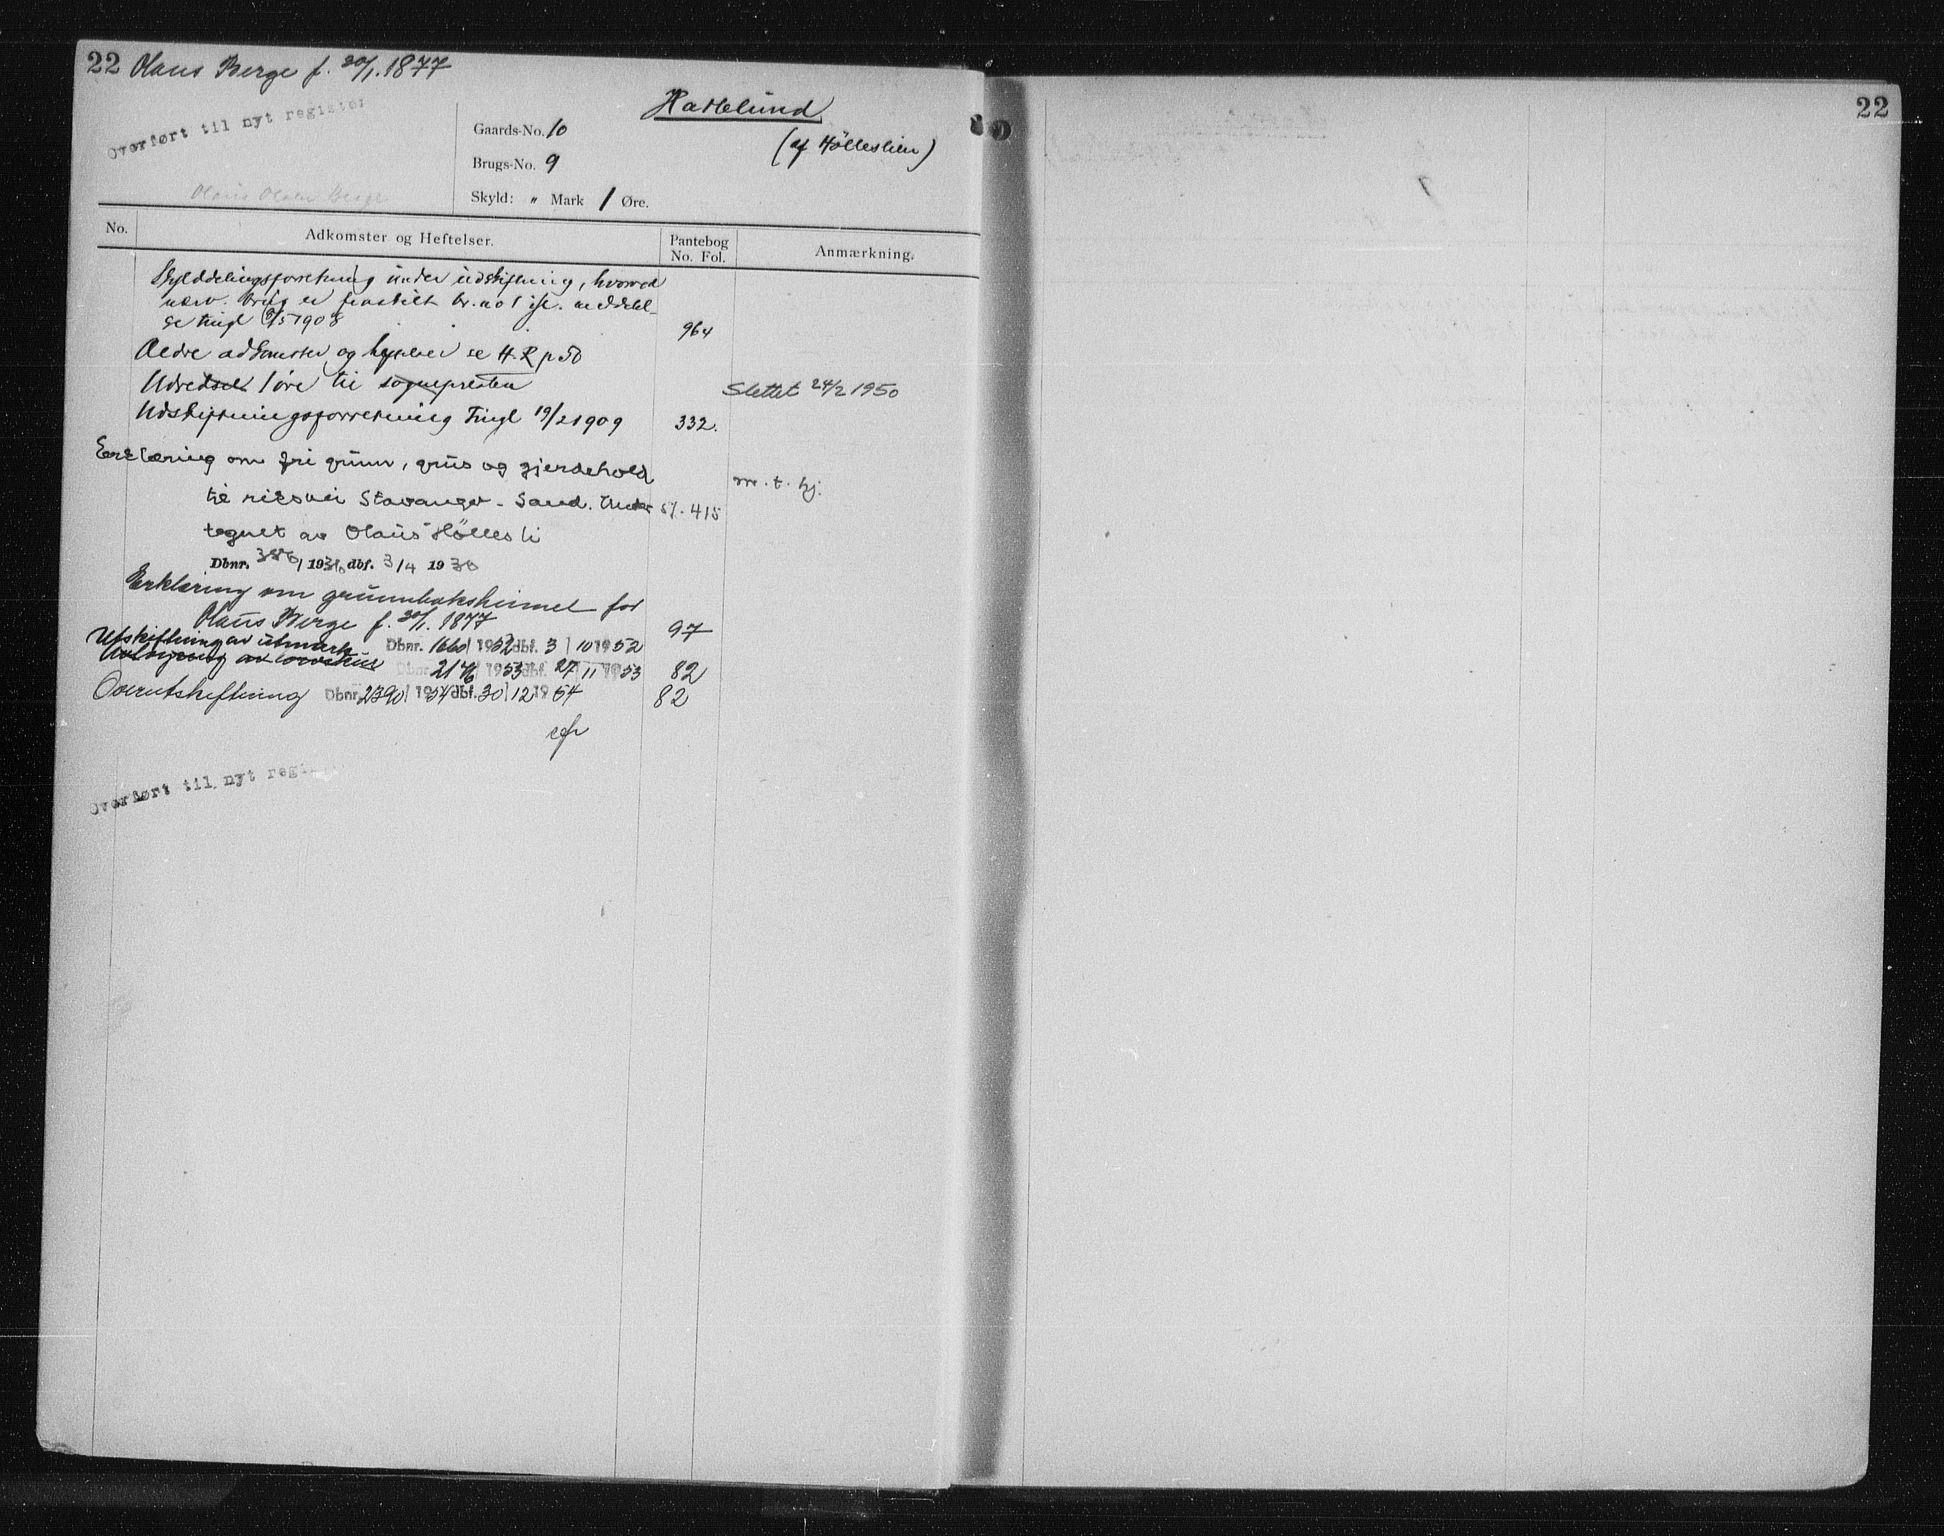 22 Olaus Berge f. 20/1. 1877
Overført til nyt register
Hasselund
(af Hölleslien)
Gaards-No. 10
Brugs-No. 9
Olaus Olsen Berge
Skyld: " Mark 1 Øre.
No. Adkomster og Heftelser. Pantebog No. Fol. Anmærkning.
Skylddelingsforretning under udskiftning, hvorved
nærv. brug er fraskilt br. no 1 if. meddelel-
se tingl 1908 964
Ældre adkomster og heftelser se H. R p 50
Udredsel 1 öre til sognepresten Slettet 24/2 1950
Udskiftningsforretning Tingl 19/2 1909 332.
Erklæring om fri grunn, grus og gjerdehold m. t. hj.
til riksvei Stavanger - Sand. Under 51. 415
tegnet av Olaus Hølles li
Dbnr. /19 dbf. 3/4 19
Erklæring om grunnboksheimel for
Olaus Berge f. 20/1. 1877 97
Dbnr. 1660/1952 dbf. 3/10 1952
Utskiftning av utmark
Dbnr. 2176/1953 dbf. 27/11 1953 82
Overutskiftning Dbnr. 2390/1954 dbf. 30/12 1954 82
Overført til nyt
22